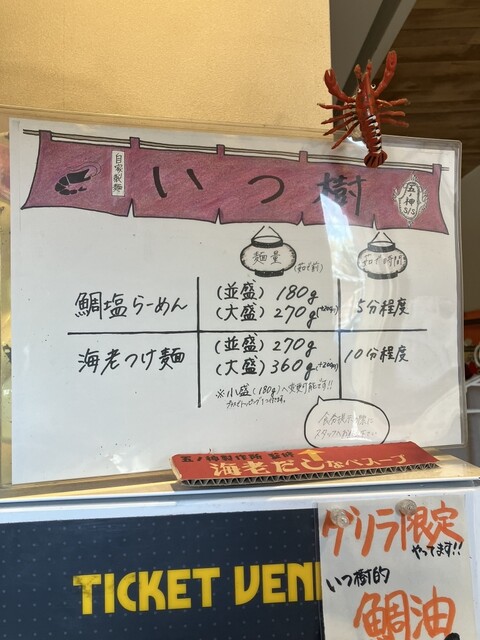 自家製麺
いつ樹
五ノ神
S/S
麺量
(茹で前)
茹で時間
鯛塩らーめん
(並盛) 180g
(大盛) 270g
5分程度
海老つけ麺
(並盛) 270g
(大盛) 360g
10分程度
※小盛(180g)へ変更可能です!!
食券提出際に
スタッフへお
さい
五ノ神製作所 監修
海老だしなべスープ
TICKET VEN
ゲリラ限定
やってます!!
いつ樹的
鯛油